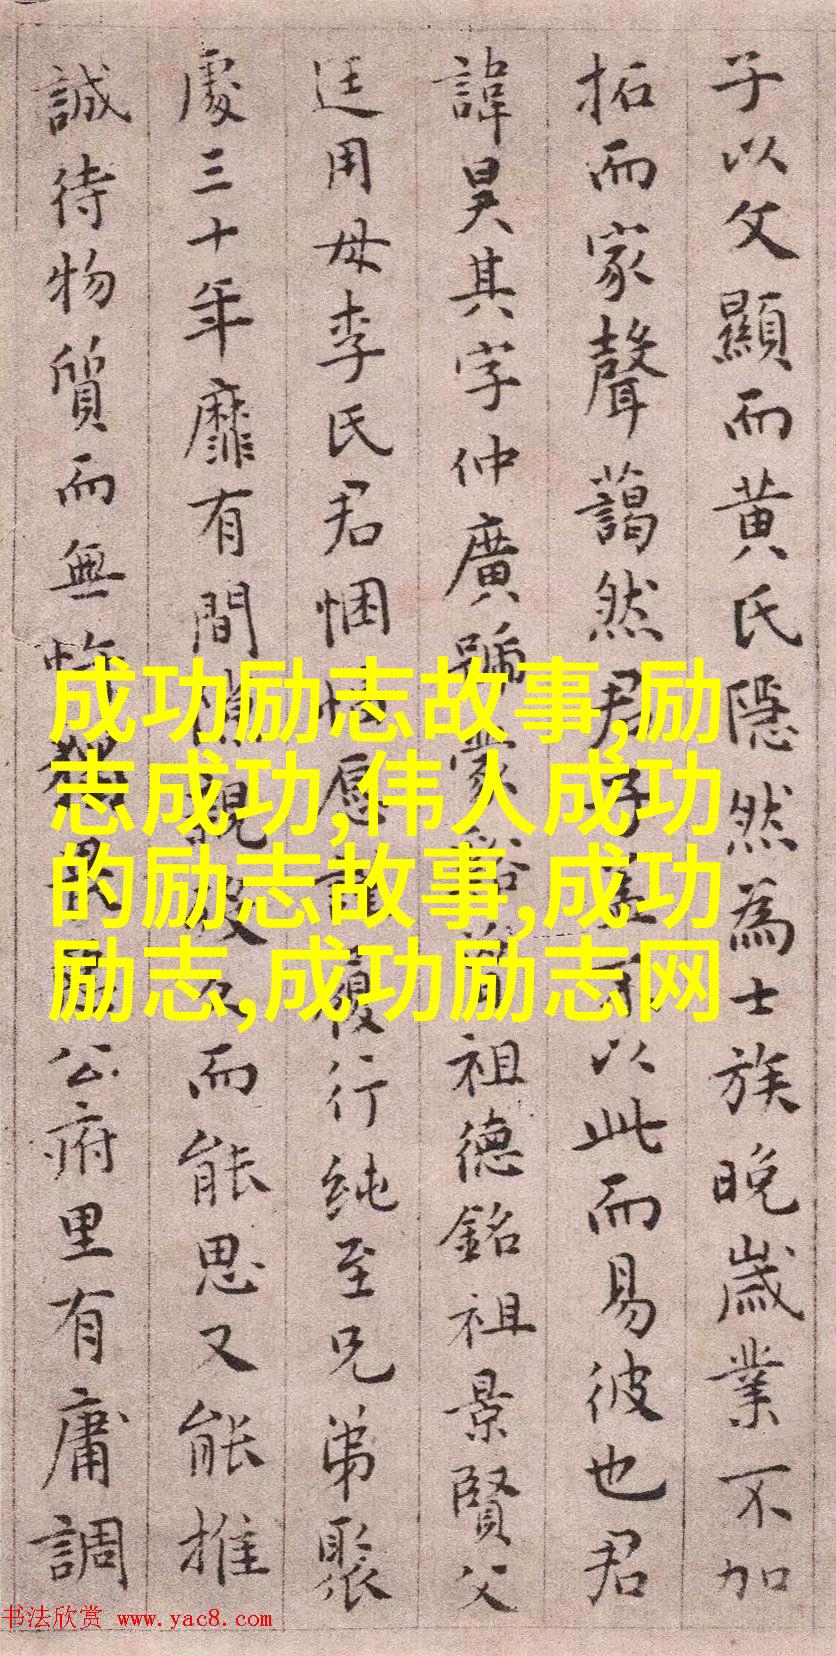 子以父顯而黄氏隱然為士族晚歲業不加
拓而家聲藹然君子不以此而易彼也君
諱昊其字仲廣號蒙祖德銘祖景賢父
廷用母李氏君悃愿履行純至兄弟聚
處三十年靡有間親而能思又能推
誠待物質而無公府里有庸調
成功励志故事,励
志成功,伟人成功
的励志故事,成功
励志,成功励志网
书法欣赏 www.yac8.com